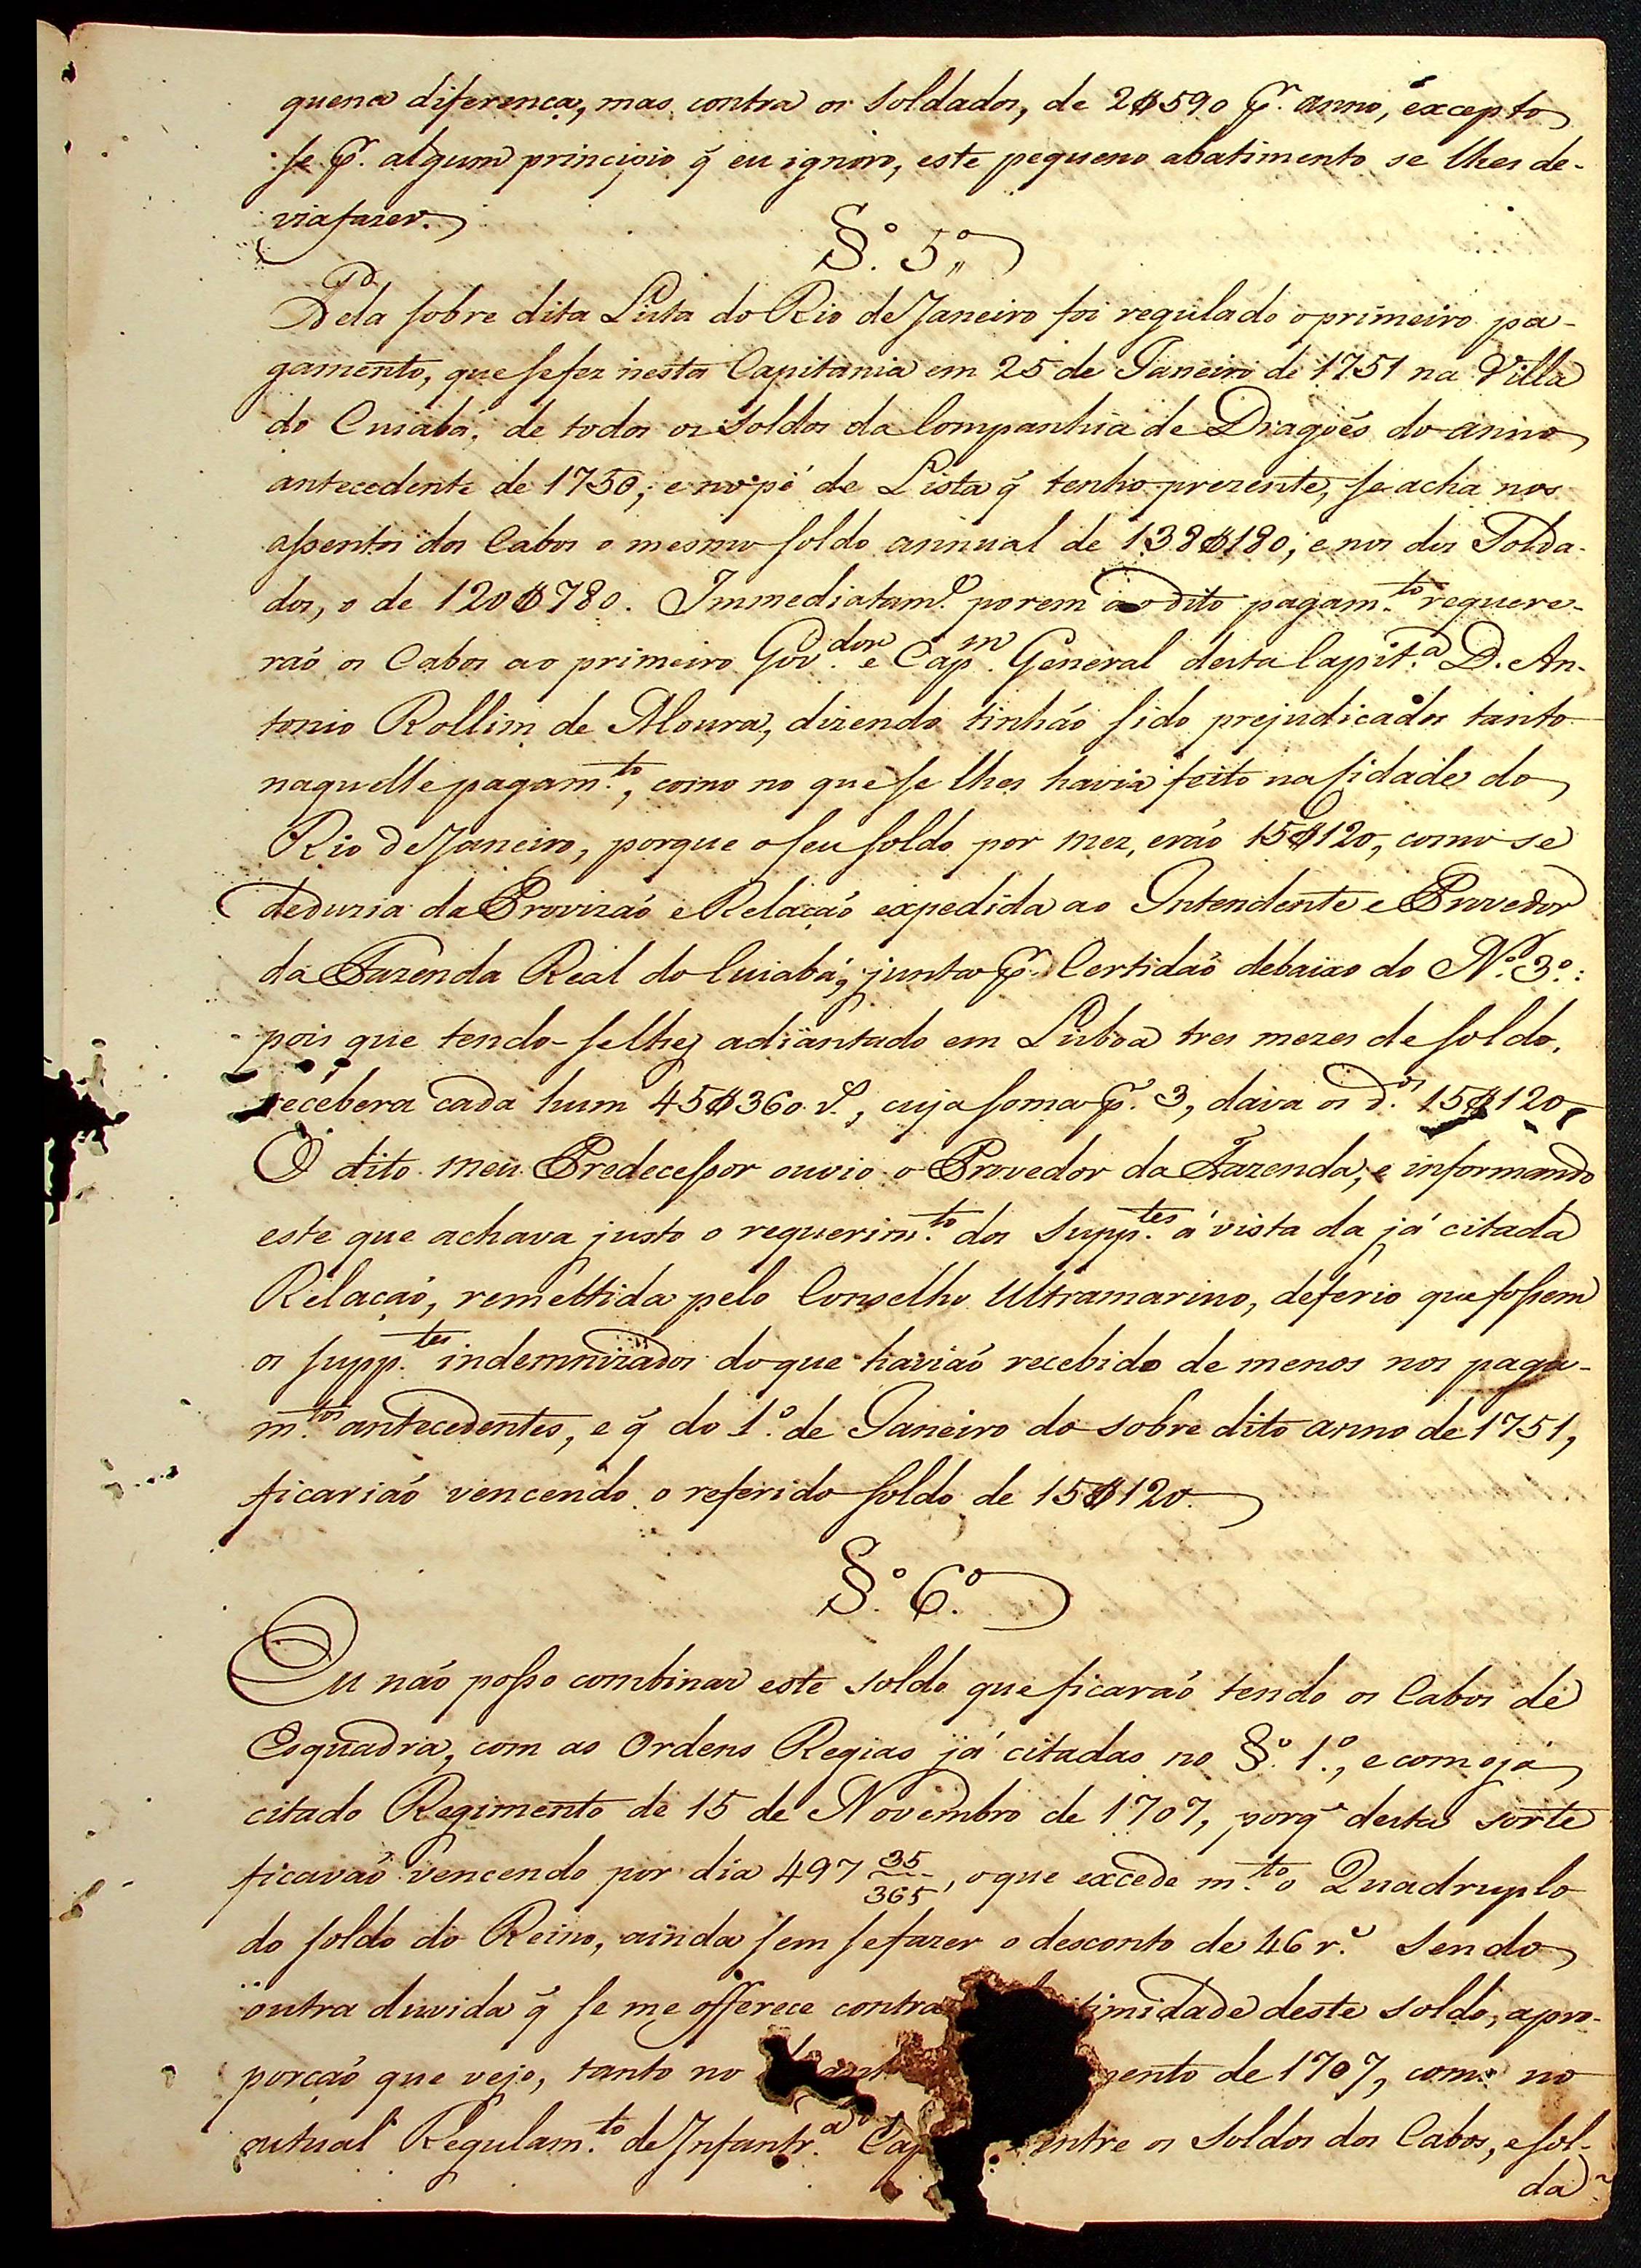 quena diferença, mas contra os soldados, de 2$590 p.r anno, excepto
se p.r algum principio q̃ eu ignoro, este pequeno abatimento se lhes de-
via fazer.
§.º 5.º
Pela sobre dita Lista do Rio de Janeiro foi regulado o primeiro pa-
gamento, que se fez nesta Capitania em 25 de Janeiro de 1751 na Villa
do Cuiabá, de todos os soldos da Companhia de Dragoẽs do anno
antecedente de 1750; e no pé de Lista q̃ tenho prezente, se acha nos
assentos dos Cabos o mesmo soldo annual de 138$180; e nos dos Solda-
dos, o de 120$780. Immediatam.e porem ao dito pagam.to requere-
raõ os Cabos ao primeiro Gov.dor e Cap.m General desta Capit.a D. An-
tonio Rollim de Moura, dizendo tinhaõ sido prejudicados tanto
naquelle pagam.to, como no que se lhes havia feito na Sidade do
Rio de Janeiro, porque o seu soldo por mez, eraõ 15$120, como se
deduzia da Provizaõ e Relaçaõ expedida ao Intendente e Provedor
da Fazenda Real do Cuiabá, junta p.r Certidaõ debaixo do N.º 3.º:
pois que tendo-se lhes adiantado em Lisboa tres mezes de soldo,
recebera cada hum 45$360 r.s, cuja soma p.r 3, dava os d.os 15$120.
O dito meu Predecessor ouvio o Provedor da Fazenda, e informando
este que achava justo o requerim.to dos Supp.tes á vista da já citada
Relaçaõ, remettida pelo Conselho Ultramarino, deferio que fossem
os supp.tes indemnizados do que haviaõ recebido de menos nos paga-
m.tos antecedentes, e q̃ do 1.º de Janeiro do sobre dito anno de 1751,
ficariaõ vencendo o referido soldo de 15$120.
§.º 6.º
Eu naõ posso combinar este soldo que ficaraõ tendo os Cabos de
Esquadra, com as Ordens Regias já citadas no §.º 1.º, e com o já
citado Regimento de 15 de Novembro de 1707, porq.e desta sorte
ficavaõ vencendo por dia 497 35/365, o que excede m.to o Quadruplo
do soldo do Reino, ainda sem se fazer o desconto de 46 r.s Sendo
outra duvida q̃ se me offerece contra timidade deste soldo, a pro-
porçaõ que vejo, tanto no mento de 1707, como no
autual Regulam.to de Infantr.a entre os soldos dos Cabos, e sol-
da-